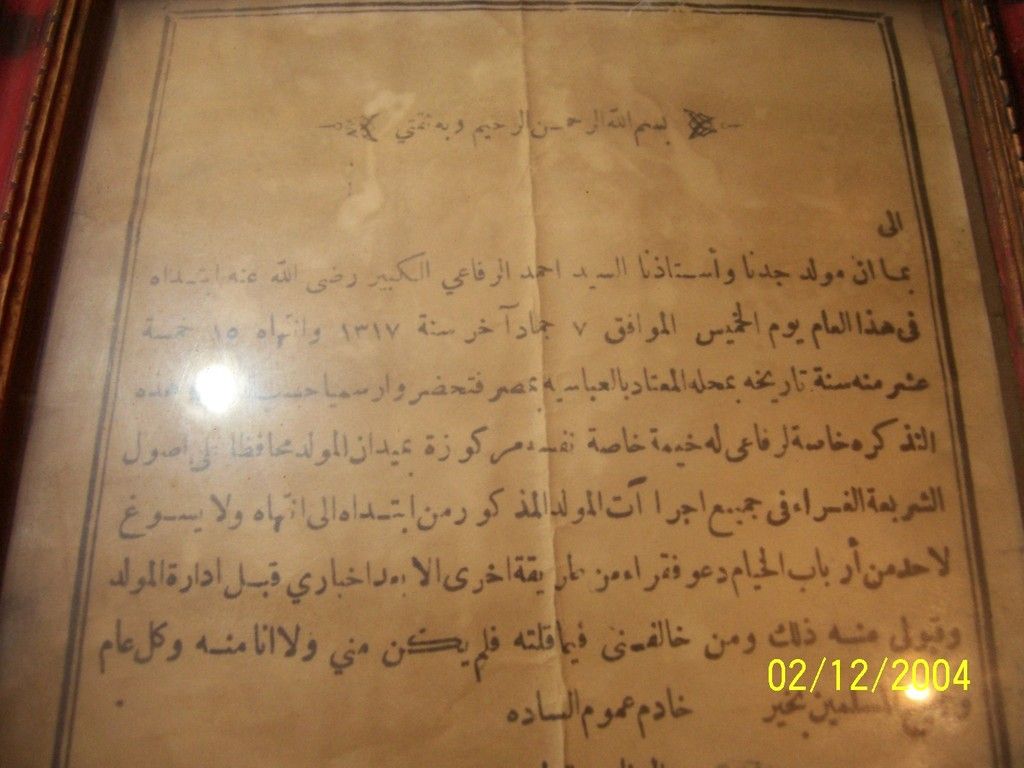 بسم الله الرحمن الرحيم وبه ثقتي
الى
بما ان مولد جدنا وأستاذنا السيد احمد الرفاعي الكبير رضى الله عنه ابتداه
فى هذا العام يوم الخميس الموافق ٧ جمادآخر سنة ١٣١٧ وانتهاه ١٥ خمسة
عشر منه سنة تاريخه بمحله المعتاد بالعباسيه بمصر فتحضروا رسميا حسب وهذه
التذكره خاصة لرفاعى له خيمة خاصة نفسه مركوزة بميدان المولد محافظا على اصول
الشريعة الغراء فى جميع اجراآت المولد المذكور من ابتداه الى انتهاه ولا يسوغ
لاحد من أرباب الخيام دعو فقراء من طريقة اخرى الا بعد اخباري قبل ادارة المولد
وقبولى منه ذلك ومن خالفنى فيما قلته فلم يكن مني ولا انا منه وكل عام
المسلمين بخير خادم عموم الساده
02/12/2004